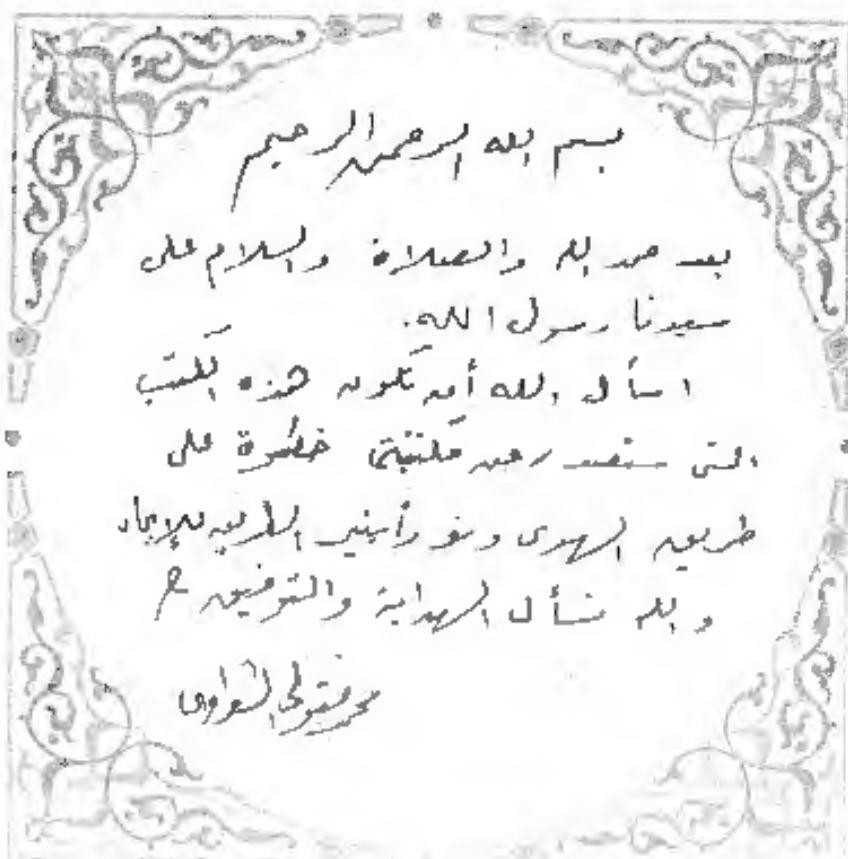 بسم الله الرحمن الرحيم
بعد حمد الله والصلاة والسلام على
سيدنا رسول الله.
اسأل الله أن تكون هذه الكتب
التى ستصدر عن مكتبتى خطوة على
طريق الهدى ونوراً ينير الطريق للإيمان
والله نسأل الهداية والتوفيق
محمد متولى الشعراوى